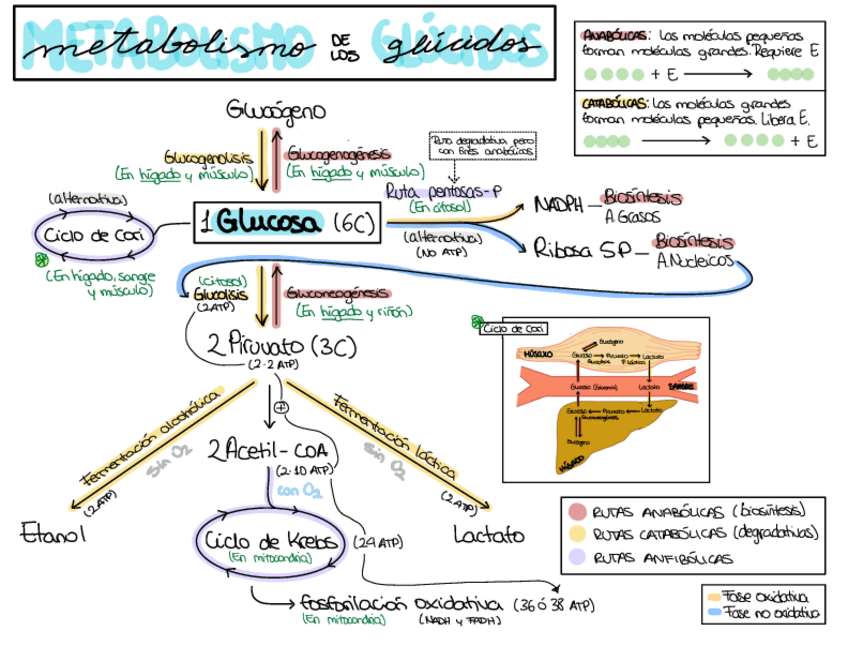 METABOLISMO DE LOS GLÚCIDOS
metabolismo DE LOS glúcidos
ANABÓLICAS: Las moléculas pequeñas
forman moléculas grandes. Requiere E
+ E
CATABÓLICAS: Las moléculas grandes
forman moléculas pequeñas. Libera E.
+ E
Glucógeno
Glucogenolisis
(En hígado y músculo)
Glucogenogénesis
(En hígado y músculo)
Ruta degradativa pero
con fines anabólicos
(alternativa)
Ciclo de Cori
(En hígado, sangre
y músculo)
1 Glucosa (6C)
Ruta pentosas-P
(En citosol)
(alternativa)
(NO ATP)
NADPH - Biosíntesis
A.Grasos
Ribosa 5P - Biosíntesis
A.Nucleicos
(citosol)
Glucolisis
(2ATP)
Gluconeogénesis
(En hígado y riñón)
2 Piruvato (3C)
(2·2 ATP)
+
Fermentación alcohólica
sin O2
(2ATP)
Etanol
2 Acetil-COA
(2·10 ATP)
con O2
Fermentación láctica
sin O2
(2ATP)
Lactato
Ciclo de Krebs
(En mitocondria)
(24 ATP)
Fosforilación oxidativa (36 ó 38 ATP)
(En mitocondria)
(NADH y FADH)
Ciclo de Cori
MÚSCULO
Glucógeno
Glucosa
Piruvato
Lactato
Glucosa
Lactato
SANGRE
Glucosa
Piruvato
Lactato
Gluconeogénesis
Glucógeno
HÍGADO
RUTAS ANABÓLICAS (biosíntesis)
RUTAS CATABÓLICAS (degradativas)
RUTAS ANFIBÓLICAS
Fase oxidativa
Fase no oxidativa